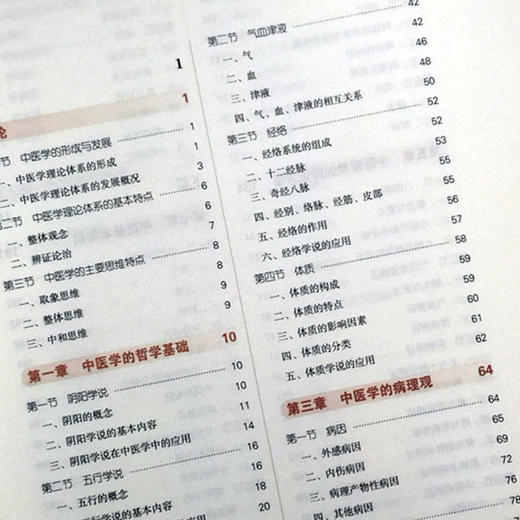 1
论 1
节 中医学的形成与发展 1
一、中医学理论体系的形成 1
二、中医学理论体系的发展概况 3
二节 中医学理论体系的基本特点 6
一、整体观念 6
二、辨证论治 7
第三节 中医学的主要思维特点 8
一、取象思维 8
二、整体思维 9
三、中和思维 9
第一章 中医学的哲学基础 10
第一节 阴阳学说 10
一、阴阳的概念 10
二、阴阳学说的基本内容 11
三、阴阳学说在中医学中的应用 14
第二节 五行学说 16
一、五行的概念 16
行学说的基本内容 18
20
第二节 气血津液 42
一、气 42
二、血 46
三、津液 48
四、气、血、津液的相互关系 50
第三节 经络 52
一、经络系统的组成 52
二、十二经脉 53
三、奇经八脉 55
四、经别、络脉、经筋、皮部 56
五、经络的作用 57
六、经络学说的应用 58
第四节 体质 58
一、体质的构成 59
二、体质的特点 60
三、体质的影响因素 61
四、体质的分类 62
五、体质学说的应用 62
第三章 中医学的病理观 64
第一节 病因 64
一、外感病因 65
二、内伤病因 69
三、病理产物性病因 72
四、其他病因 76
78